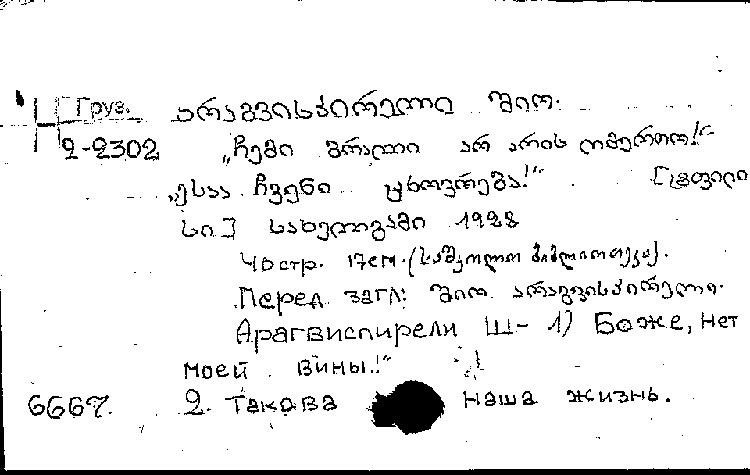 Груз. არაგვისპირელი შიო.
Н 2-2302 „ჩემი ბრალი არ არის ღმერთო!“
„ესაა ჩვენი ცხოვრება!“
სახელგამი 1928
40 стр. 17 см. (საშკოლო ბიბლიოთეკა).
Перед загл: შიო არაგვისპირელი.
Арагвиспирели Ш- 1) Боже, нет
моей вины!“
6667. 2. Такова наша жизнь.